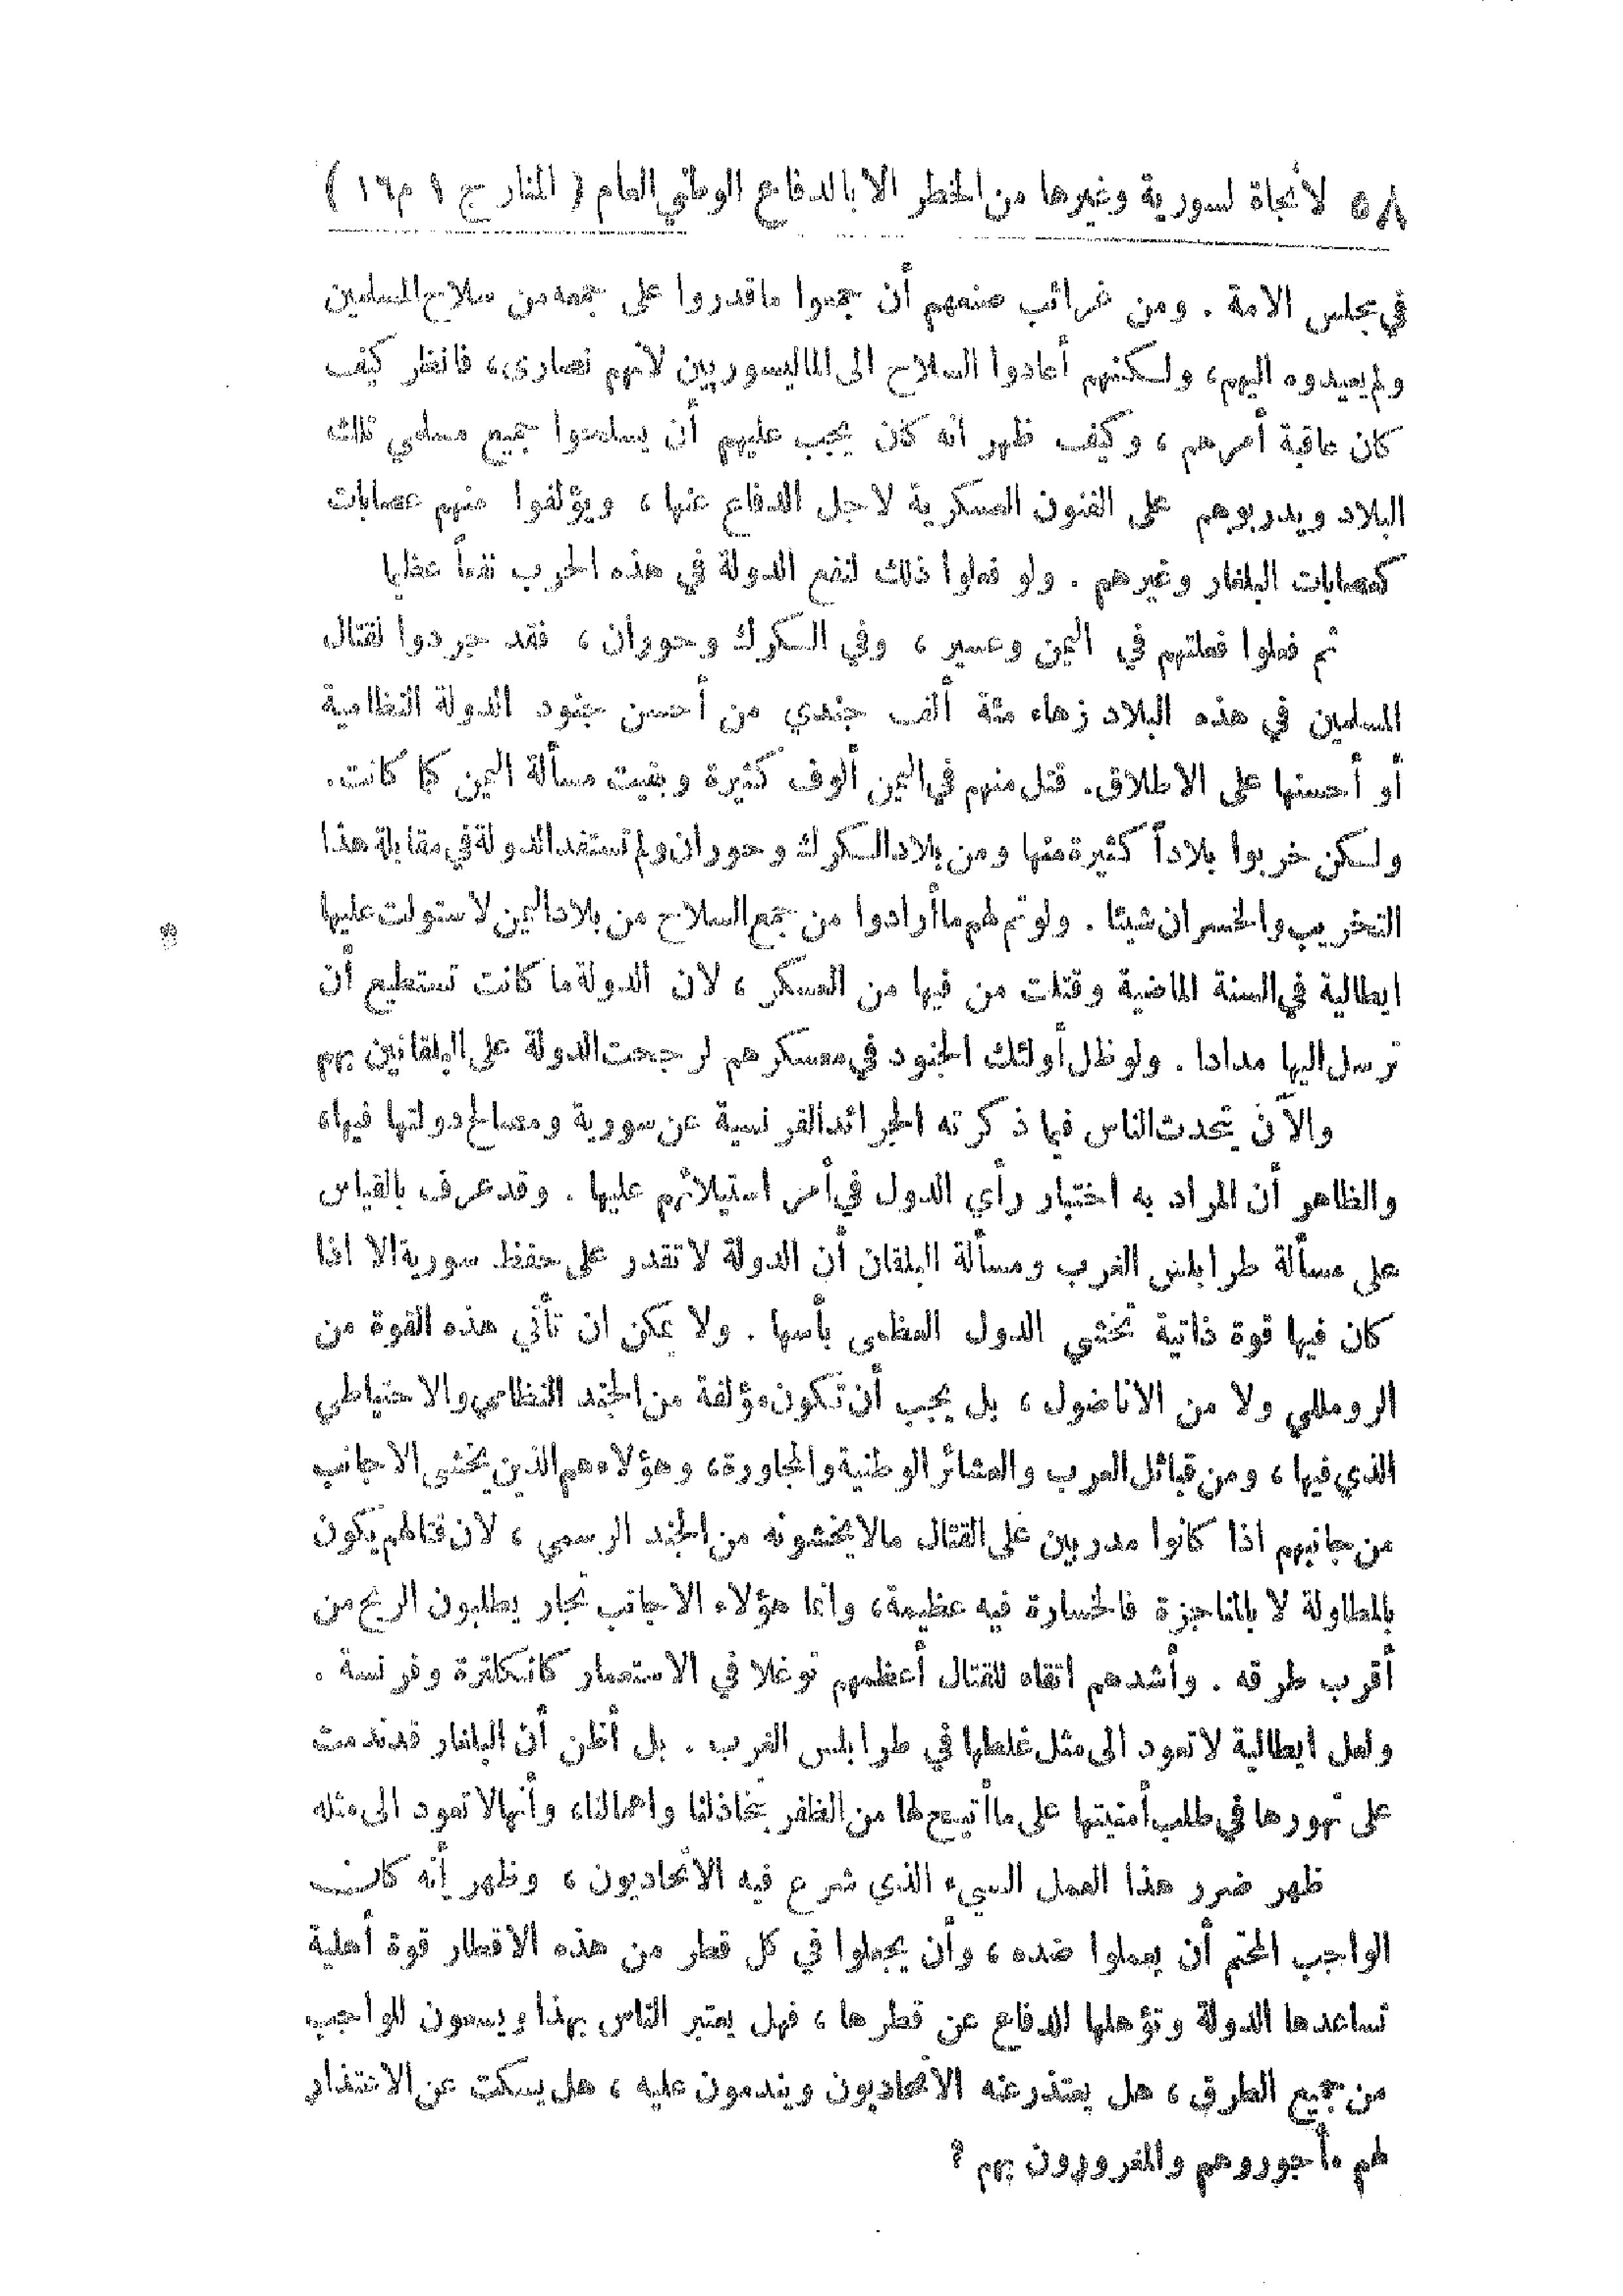 ٥٨ لا نجاة لسورية وغيرها من الخطر الا بالدفاع الوطني العام ( المنار ج ١ م ١٦ )
في مجلس الامة . ومن غرائب صنعهم أن جمعوا ما قدروا على جمعه من سلاح المسلمين
ولم يعيدوه اليهم، ولكنهم أعادوا السلاح الى الماليسوريين لانهم نصارى، فانظر كيف
كان عاقبة أمرهم ، وكيف ظهر انه كان يجب عليهم أن يسلحوا جميع مسلمي تلك
البلاد ويدربوهم على الفنون العسكرية لاجل الدفاع عنها ، ويؤلفوا منهم عصابات
كعصابات البلغار وغيرهم . ولو فعلوا ذلك لنفع الدولة في هذه الحرب نفعاً عظيما
ثم فعلوا فعلتهم في اليمن وعسير ، وفي الكرك وحوران ، فقد جردوا لقتال
المسلمين في هذه البلاد زهاء مئة ألف جندي من أحسن جنود الدولة النظامية
أو أحسنها على الاطلاق. قتل منهم في اليمن ألوف كثيرة وبقيت مسألة اليمن كما كانت.
ولكن خربوا بلاداً كثيرة منها ومن بلاد الكرك وحوران ولم تستفد الدولة في مقابلة هذا
التخريب والخسران شيئا . ولو تم لهم ما أرادوا من جمع السلاح من بلاد اليمن لاستولت عليها
ايطالية في السنة الماضية وقتلت من فيها من العسكر ، لان الدولة ما كانت تستطيع أن
ترسل اليها مدادا . ولو ظل أولئك الجنود في معسكرهم لرجحت الدولة على البلقانيين بهم
والآن يتحدث الناس فيما ذكرته الجرائد الفرنسية عن سورية ومصالح دولتها فيها،
والظاهر أن المراد به اختبار رأي الدول في أمر استيلائهم عليها . وقد عرف بالقياس
على مسألة طرابلس الغرب ومسألة البلقان أن الدولة لا تقدر على حفظ سورية الا اذا
كان فيها قوة ذاتية تخشى الدول العظمى بأسها . ولا يمكن ان تأتي هذه القوة من
الرومللي ولا من الاناضول ، بل يجب أن تكون مؤلفة من الجند النظامي والاحتياطي
الذي فيها ، ومن قبائل العرب والعشائر الوطنية والمجاورة، وهؤلاء هم الذين يخشى الاجانب
من جانبهم اذا كانوا مدربين على القتال مالا يخشونه من الجند الرسمي ، لان قتالهم يكون
بالمطاولة لا بالمناجزة فالخسارة فيه عظيمة، وانما هؤلاء الاجانب تجار يطلبون الربح من
أقرب طرقه . وأشدهم اتقاء للقتال أعظمهم توغلا في الاستعمار كانكلترة وفرنسة .
ولعل ايطالية لا تعود الى مثل غلطها في طرابلس الغرب . بل أظن أن البلغار قد ندمت
على تهورها في طلب أمنيتها على ما أتيح لها من الظفر بتخاذلنا واهمالنا، وأنها لا تعود الى مثله
ظهر ضرر هذا العمل السيء الذي شرع فيه الاتحاديون ، وظهر أنه كان
الواجب المحتم أن يعملوا ضده ، وأن يجعلوا في كل قطر من هذه الاقطار قوة أهلية
تساعدها الدولة وتؤهلها للدفاع عن قطرها ، فهل يعتبر الناس بهذا ويسعون للواجب
من جميع الطرق ، هل يعتذر عنه الاتحاديون ويندمون عليه ، هل يسكت عن الاعتذار
لهم مأجوروهم والمغرورون بهم ؟